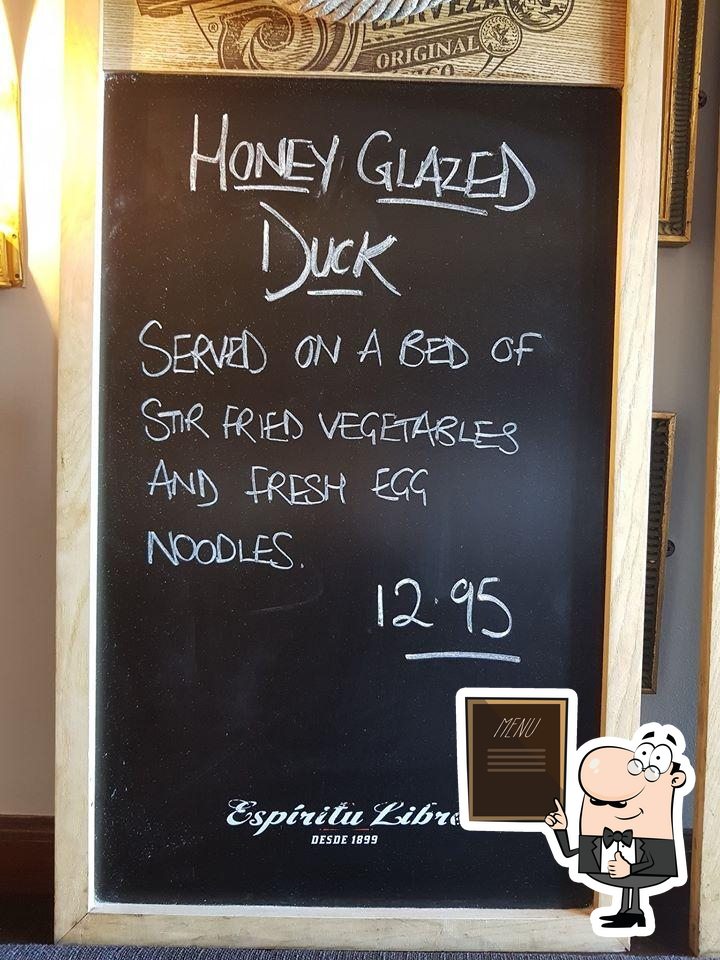 CERVEZA
ORIGINAL
HONEY GLAZED
DUCK
SERVED ON A BED OF
STIR FRIED VEGETABLES
AND FRESH EGG
NOODLES.
12.95
MENU
Espíritu Libre
DESDE 1899